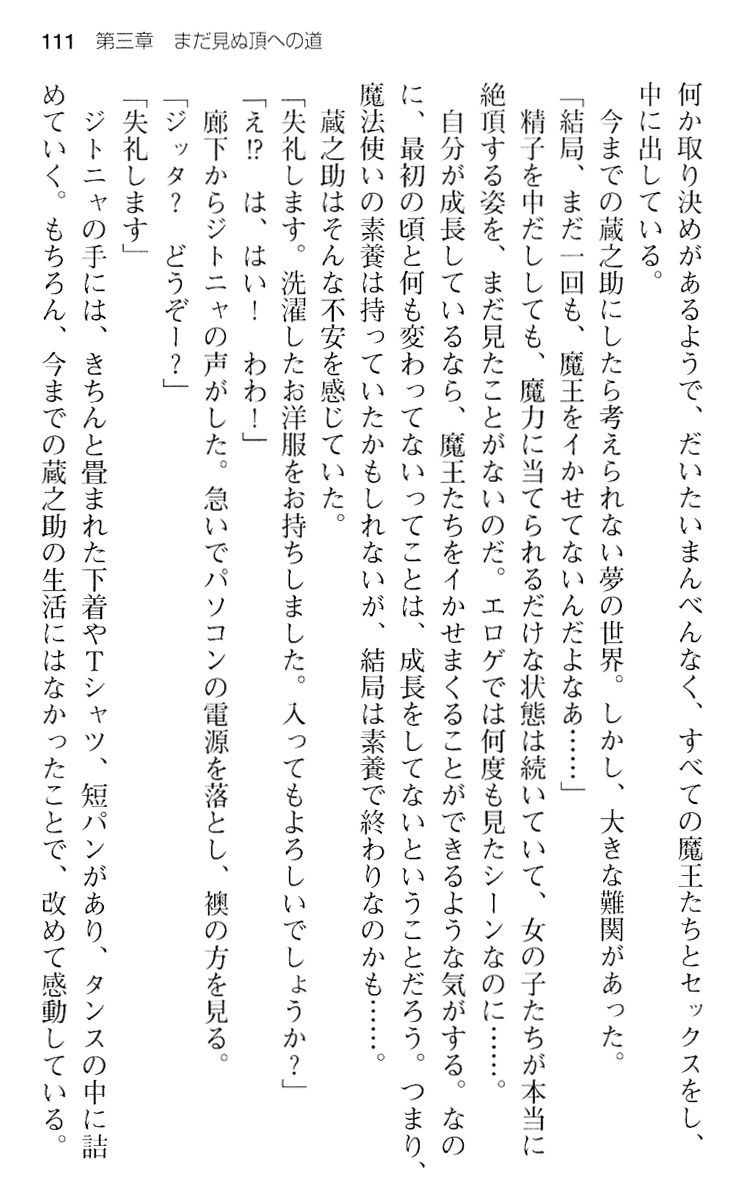 111 第三章 まだ見ぬ頂への道
何か取り決めがあるようで、だいたいまんべんなく、すべての魔王たちとセックスをし、
中に出している。
　今までの蔵之助にしたら考えられない夢の世界。しかし、大きな難関があった。
「結局、まだ一回も、魔王をイかせてないんだよなあ……」
　精子を中だししても、魔力に当てられるだけな状態は続いていて、女の子たちが本当に
絶頂する姿を、まだ見たことがないのだ。エロゲでは何度も見たシーンなのに……。
　自分が成長しているなら、魔王たちをイかせまくることができるような気がする。なの
に、最初の頃と何も変わってないってことは、成長をしてないということだろう。つまり、
魔法使いの素養は持っていたかもしれないが、結局は素養で終わりなのかも……。
　蔵之助はそんな不安を感じていた。
「失礼します。洗濯したお洋服をお持ちしました。入ってもよろしいでしょうか？」
「え!?　は、はい！　わわ！」
　廊下からジトニャの声がした。急いでパソコンの電源を落とし、襖の方を見る。
「ジッタ？　どうぞー？」
「失礼します」
　ジトニャの手には、きちんと畳まれた下着やTシャツ、短パンがあり、タンスの中に詰
めていく。もちろん、今までの蔵之助の生活にはなかったことで、改めて感動している。